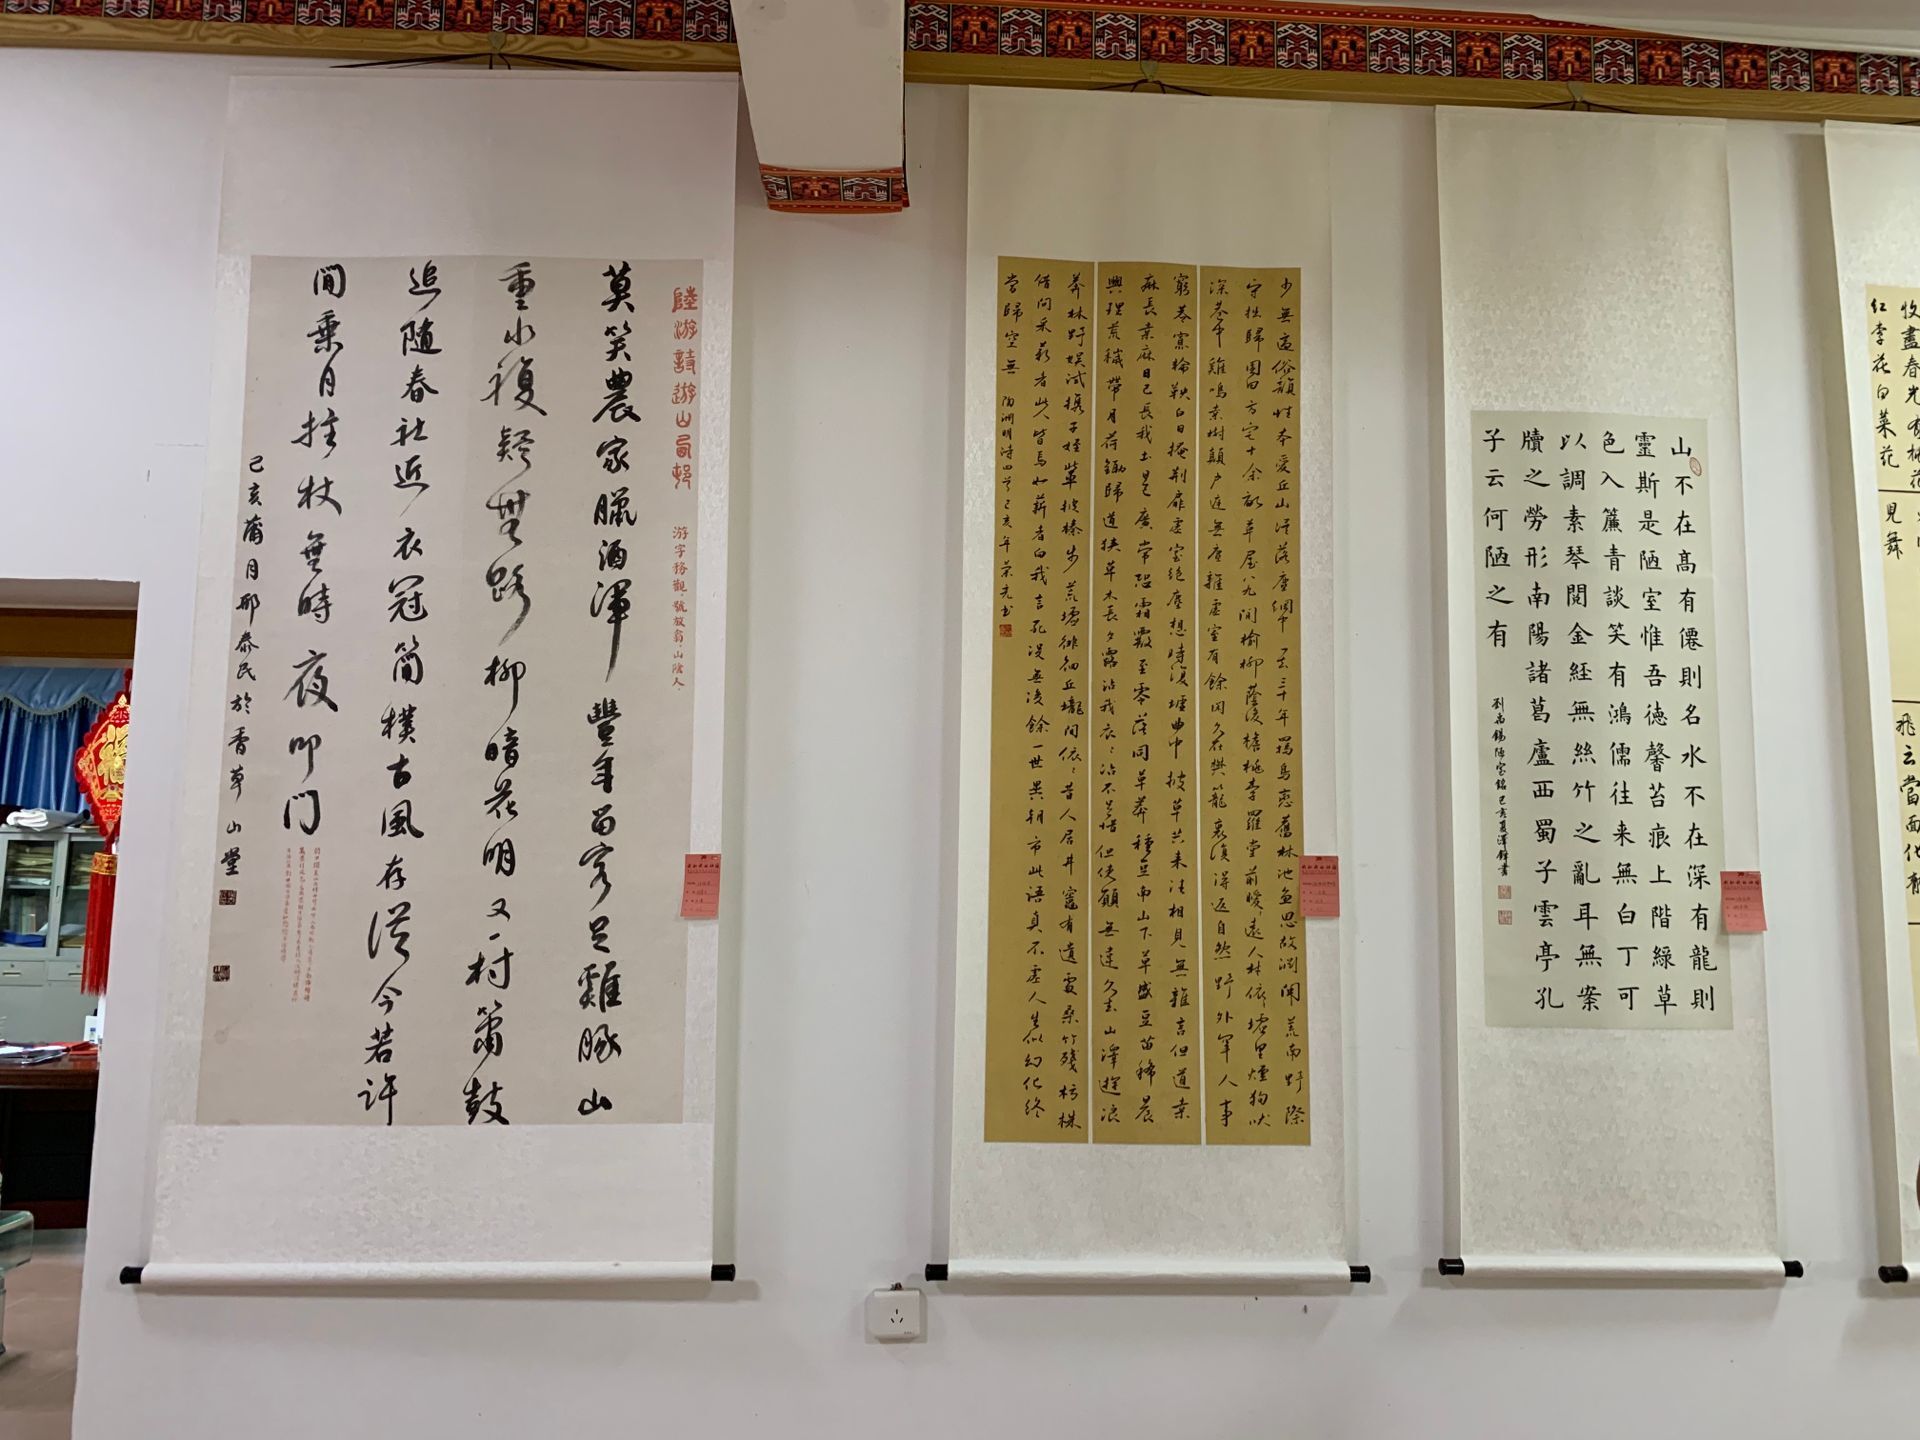 陸游詩遊山西村
游字務觀，號放翁，山陰人。
莫笑農家臘酒渾豐年留客足雞豚山
重水複疑無路柳暗花明又一村簫鼓
追隨春社近衣冠簡樸古風存從今若許
閒乘月拄杖無時夜叩門
己亥蒲月邢泰民於香草山堂
少無適俗韻性本愛丘山誤落塵網中一去三十年羈鳥戀舊林池魚思故淵開荒南野際
守拙歸園田方宅十余畝草屋八九間榆柳蔭後簷桃李羅堂前曖曖遠人村依依墟里煙狗吠
深巷中雞鳴桑樹顛戶庭無塵雜虛室有餘閑久在樊籠裏復得返自然野外罕人事
窮巷寡輪鞅白日掩荊扉虛室絕塵想時復墟曲中披草共来往相見無雜言但道桑
麻長桑麻日已長我土日已廣常恐霜霰至零落同草莽種豆南山下草盛豆苗稀晨
興理荒穢帶月荷鋤歸道狹草木長夕露沾我衣衣沾不足惜但使願無違久去山澤遊浪
莽林野娛試攜子姪輩披榛步荒墟徘徊丘壠間依依昔人居井竈有遺處桑竹殘朽株
借問采薪者此人皆焉如薪者向我言死没無復餘一世異朝市此語真不虛人生似幻化終
當歸空無 陶淵明詩四首己亥年荣元书
山不在高有僊則名水不在深有龍則
靈斯是陋室惟吾德馨苔痕上階綠草
色入簾青談笑有鴻儒往来無白丁可
以調素琴閱金経無絲竹之亂耳無案
牘之勞形南陽諸葛廬西蜀子雲亭孔
子云何陋之有
劉禹錫陋室銘己亥夏澤鋒書
收盡春光有桃花
红李花白菜花
見舞
飛云當面化